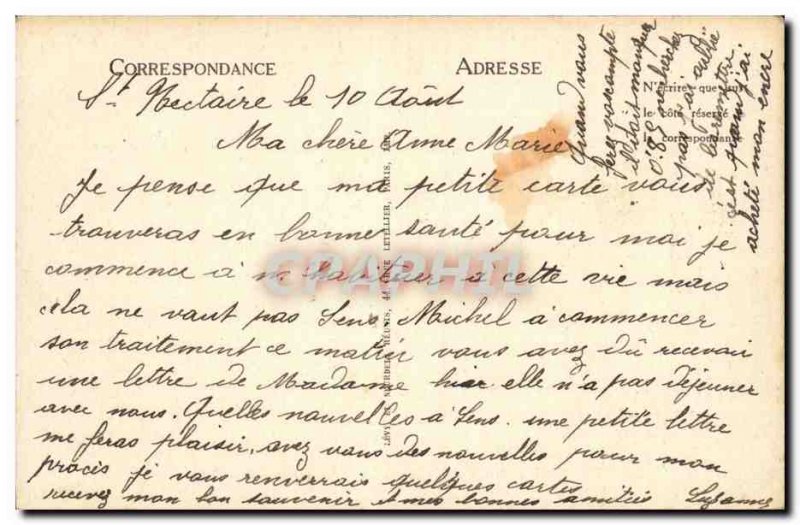 CORRESPONDANCE
ADRESSE
St. Nectaire le 10 Août
Ma chère Anne Marie
Je pense que ma petite carte vous
trouveras en bonne santé pour moi je
commence à m habituer a cette vie mais
cela ne vaut pas Sens. Michel à commencer
son traitement ce matin vous avez dû recevoi
une lettre de Madame hier elle n'a pas déjeuner
avec nous. Quelles nouvelles a Sens. une petite lettre
me feras plaisir, avez vous des nouvelles pour mon
procès je vous renverrais quelques cartes
recevez mon bon souvenir et mes bonnes amitiés Suzanne
Quand vous
ferez vos compte
il doit manquer
0.85 ne cherchez
pas j'ai
de
c'est quand j'ai
acheté mon encre
N'écrire que sur
le côté réservé à la
correspondance
LÉVY ET NEURDEIN RÉUNIS, 44, RUE LETELLIER, PARIS, IMP.
CPAPHIL